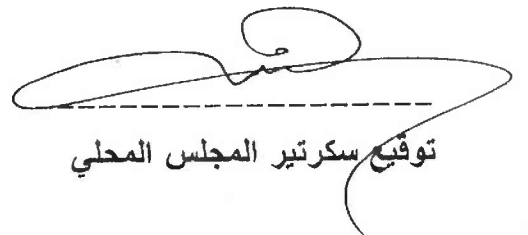 توقيع سكرتير المجلس المحلي